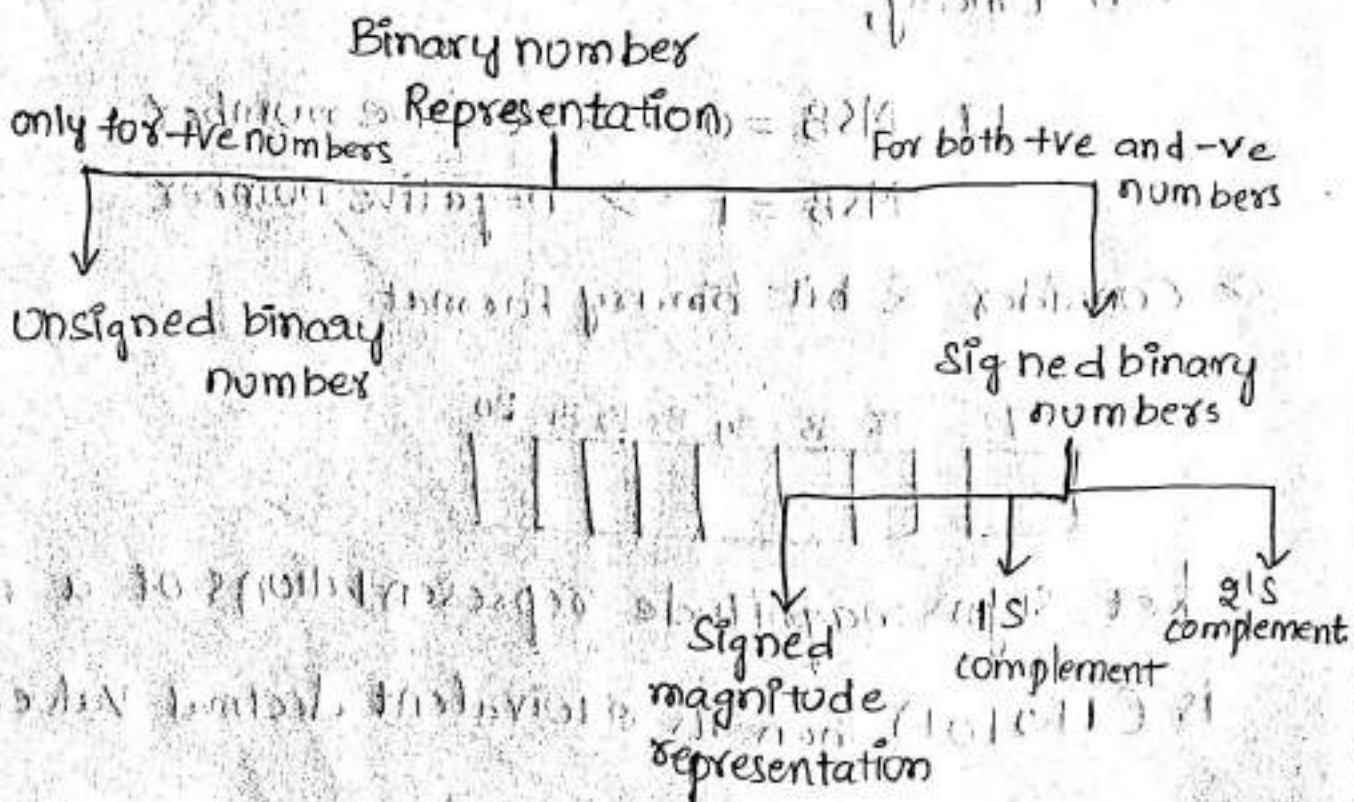 Binary number
Representation
only for +ve numbers
For both +ve and -ve
numbers
Unsigned binary
number
Signed binary
numbers
Signed
magnitude
representation
1's
complement
2's
complement